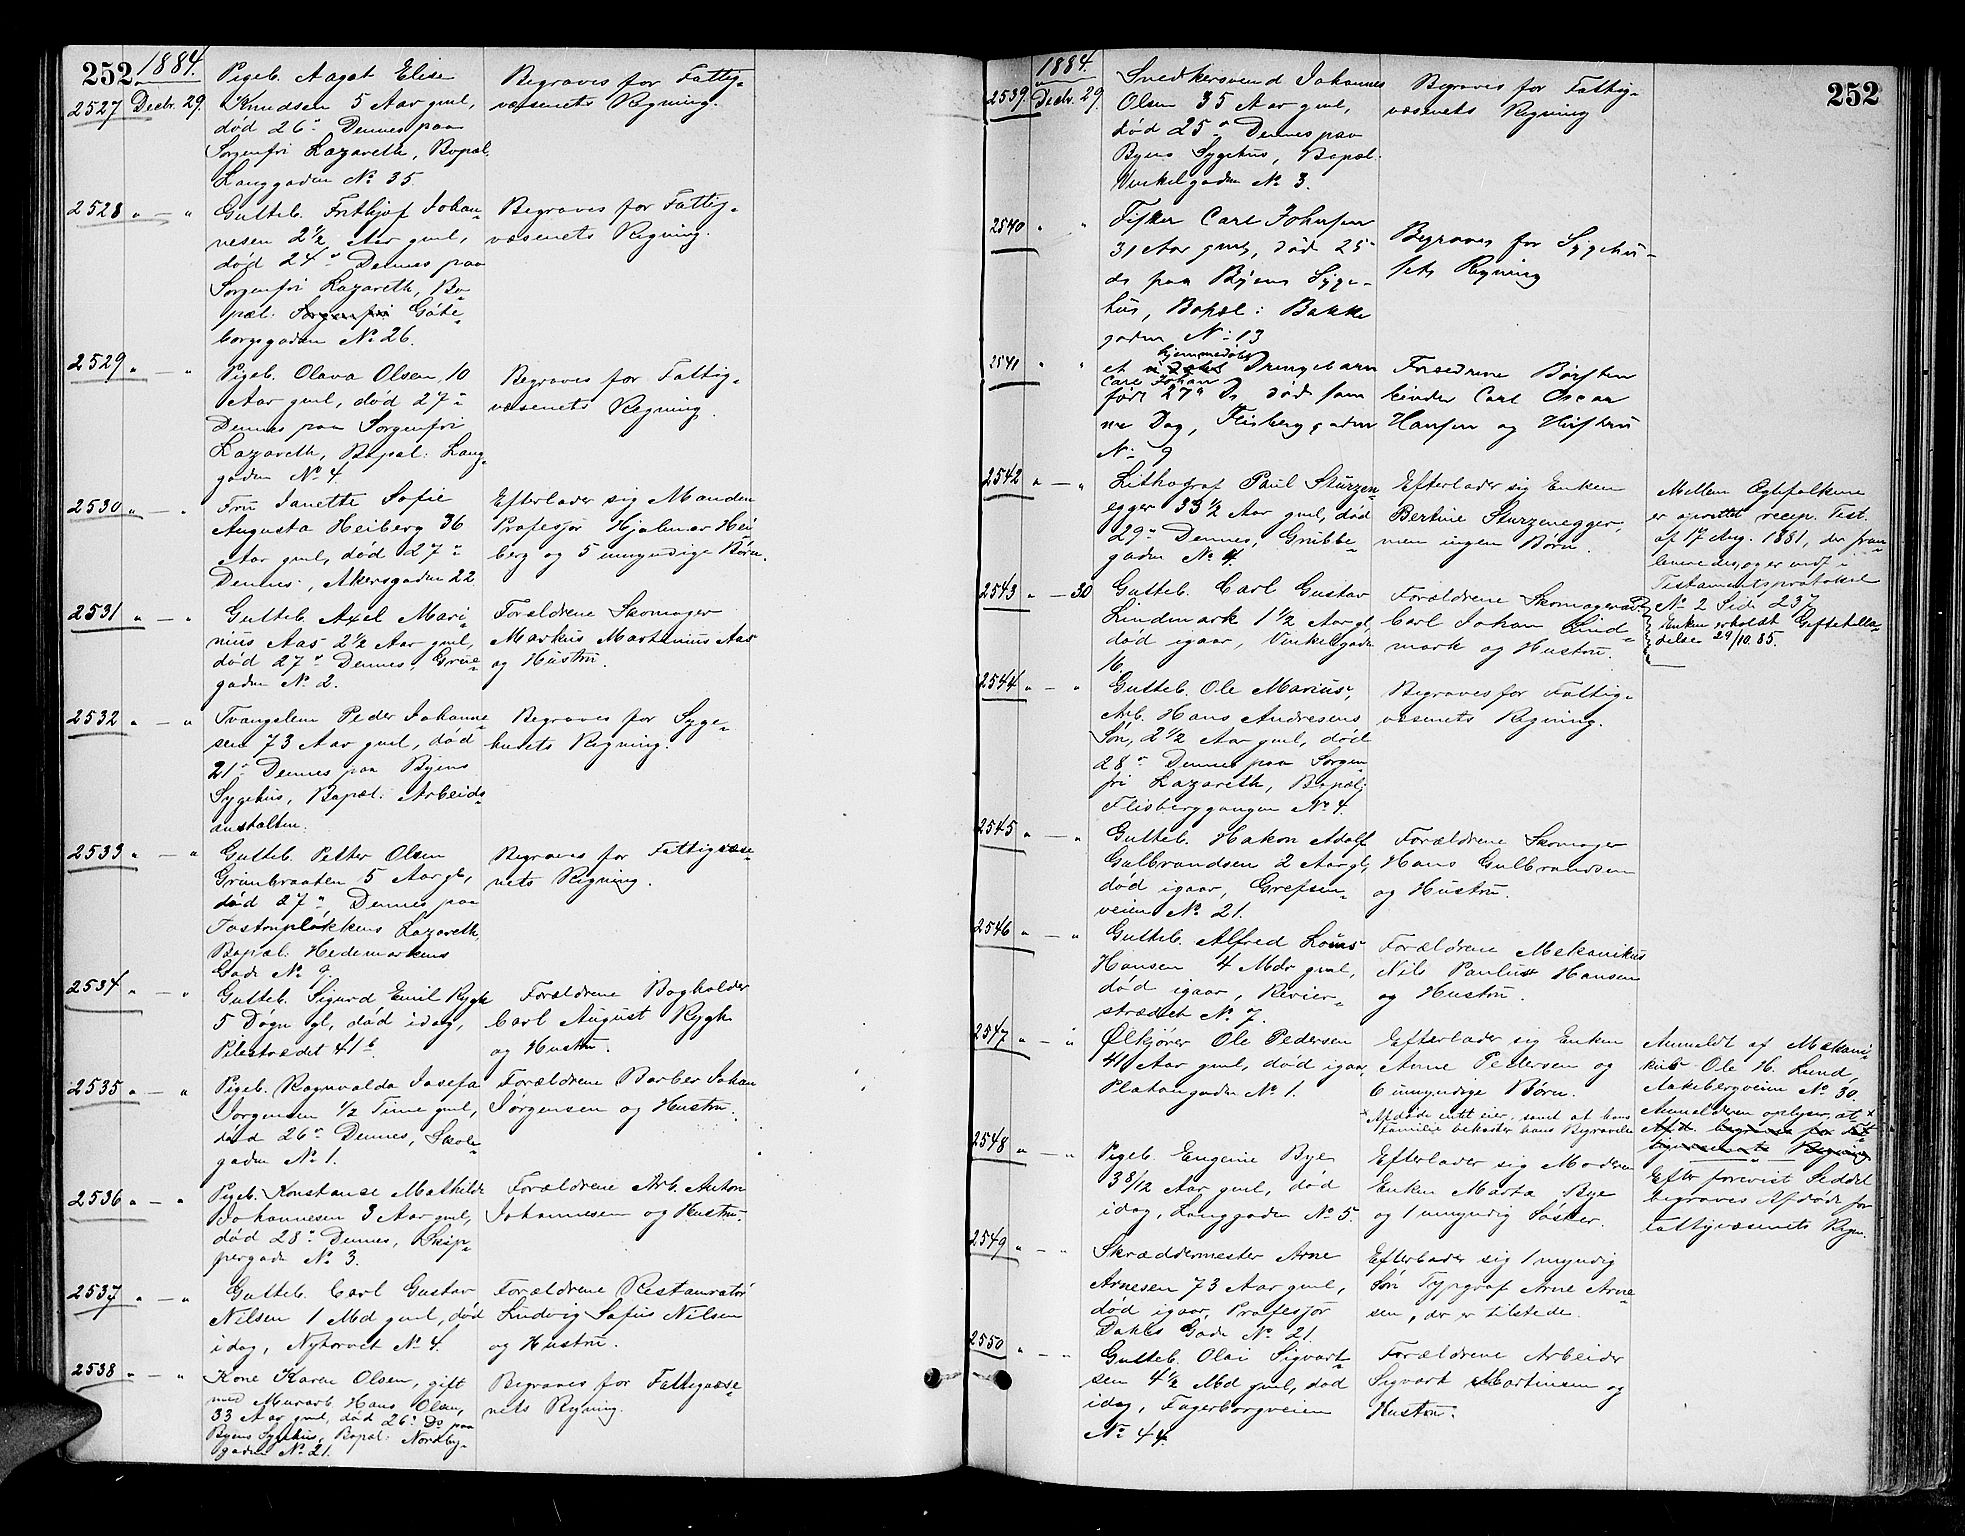 252
1884.
2527 Decbr. 29.
Pigeb. Aagot Elise
Knudsen 5 Aar gml,
død 26de Dennes paa
Sorgenfri Lazareth, Bopæl.
Langgaden No 35.
Begraves for Fattig-
væsenets Regning.
2528 " — "
Gutteb. Frithjof Johan-
nesen 2½ Aar gml,
død 24de Dennes paa
Sorgenfri Lazareth, Bo-
pæl: Sorgenfri Göte-
borgsgaden No 26.
Begraves for Fattig-
væsenets Regning.
2529 " — "
Pigeb. Olava Olsen, 10
Aar gml, død 27de
Dennes paa Sorgenfri
Lazareth, Bopæl: Lang-
gaden No 4.
Begraves for Fattig-
væsenets Regning.
2530 " — "
Fru Janette Sofie
Augusta Heiberg 36
Aar gml, død 27de
Dennes, Akersgaden 22
Efterlader sig Manden
Profesjor Hjalmar Hei-
berg og 5 umyndige Børn.
2531 " — "
Gutteb. Axel Mari-
nius Aas 2½ Aar gml,
død 27de Dennes, Grue-
gaden No 2.
Forældrene Skomager
Markus Martinius Aas
og Hustru.
2532 " — "
Tvangslem Peder Johanne-
sen 73 Aar gml, død
21de Dennes paa Byens
Sygehus, Bopæl: Arbeids-
anstalten.
Begraves for Syge-
husets Regning.
2533 " — "
Gutteb. Petter Olsen
Grinibraaten 5 Aar gl,
død 27de Dennes paa
Tostrupløkkens Lazareth,
Bopæl: Hedemarkens
Gade No 9.
Begraves for Fattigvæse-
nets Regning.
2534 " — "
Gutteb. Sigurd Emil Rygh
5 Døgn gl, død idag,
Pilestrædet 41b
Forældrene Bogholder
Carl August Rygh
og Hustru.
2535 " — "
Pigeb. Ragnvalda Josefa
Jørgensen ½ Time gml,
død 26de Dennes, Skole-
gaden No 1.
Forældrene Barber Johan
Jørgensen og Hustru.
2536 " — "
Pigeb. Konstanse Mathilde
Johannesen 3 Aar gml,
død 28de Dennes, Skip-
pergade No 3.
Forældrene Arb. Anton
Johannesen og Hustru.
2537 " — "
Gutteb. Carl Gustav
Nilsen 1 Md gml, død
idag, Nytorvet No 4.
Forældrene Restauratør
Ludvig Sofus Nilsen
og Hustru.
2538 " — "
Kone Karen Olsen, gift
med Murarb. Hans Olsen,
33 Aar gml, død 26de Ds paa
Byens Sygehus, Bopæl: Nordby-
gaden No 21.
Begraves for Fattigvæse-
nets Regning.
1884.
252
2539 Decbr. 29.
Snedkersvend Johannes
Olsen 35 Aar gml,
død 25de Dennes paa
Byens Sygehus, Bopæl:
Vinkelgaden No 3.
Begraves for Fattig-
væsenets Regning
2540 " "
Fisker Carl Johnsen
31 Aar gml, død 25de
ds paa Byens Syge-
hus, Bopæl: Bakke
gaden No 13
Begraves for Sygehu-
sets Regning
2541 " "
hjemmedøbt
et Drengebarn
Carl Johan
født 27de Ds død sam
me Dag, Flisberggaden
No 9
Forældrene Børsten
binder Carl Oscar
Hansen og Hustru
2542 " — "
Lithograf Paul Sturzen-
egger 33½ Aar gml, død
29de Dennes, Grubbe-
gaden No 4.
Efterlader sig Enken
Bertine Sturzenegger,
men ingen Børn.
Mellem Ægtefolkene
er oprettet recep. Test.
af 17 Aug. 1881, der frem-
Testamentsprotokol
No 2 Side 237
Enken erholdt Gjeftetilla-
delse 29/10.85.
2543 " — 30
Gutteb. Carl Gustav
Lindmark 1½ Aar gl,
død igaar, Vinkelgaden
16.
Forældrene Skomagersv.
Carl Johan Lind-
mark og Hustru.
2544 " — "
Gutteb. Ole Marius,
Arb. Hans Andresens
Søn, 2½ Aar gml, død
28de Dennes paa Sorgen-
fri Lazareth, Bopæl:
Flisberggangen No 4.
Begraves for Fattig-
væsenets Regning.
2545 " — "
Gutteb. Hakon Adolf
Gulbrandsen 2 Aar gl,
død igaar, Grefsen-
veien No 21.
Forældrene Skomager
Hans Gulbrandsen
og Hustru.
2546 " — "
Gutteb. Alfred Louis
Hansen 4 Mdr gml,
død igaar, Revier-
strædet No 7.
Forældrene Mekanikus
Nils Paulus Hansen
og Hustru.
2547 " — "
Ølkjører Ole Pedersen
41 Aar gml, død igaar,
Platougaden No 1.
Efterlader sig Enken
Anne Pedersen og
6 umyndige Børn.
x Afdøde intet eier, samt at hans
Familie bekoster hans Begravelse
Anmeldt af Mekani-
kus Ole H. Lund,
Aakebergveien No 30.
Anmelderen oplyser, at x
Afd. begraves for Fat-
tigvæsenets Regning
Efter forevist Seddel
begraves Afdøde for
Fattigvæsenets Regn.
2548 " — "
Pigeb. Eugenie Bye
3 8/12 Aar gml, død
idag, Langgaden No 5.
Efterlader sig Moderen
Enken Marta Bye
og 1 umyndig Søsker.
2549 " — "
Skræddermester Arne
Arnesen 73 Aar gml,
død igaar, Profesjor
Dahls Gade No 21.
Efterlader sig 1 myndig
Søn Typograf Arne Arne-
sen, der er tilstede.
2550 " — "
Gutteb. Olai Sigvart-
sen 4½ Md gml, død
idag, Fagerborgveien
No 44.
Forældrene Arbeider
Sigvart Martinsen og
Hustru.